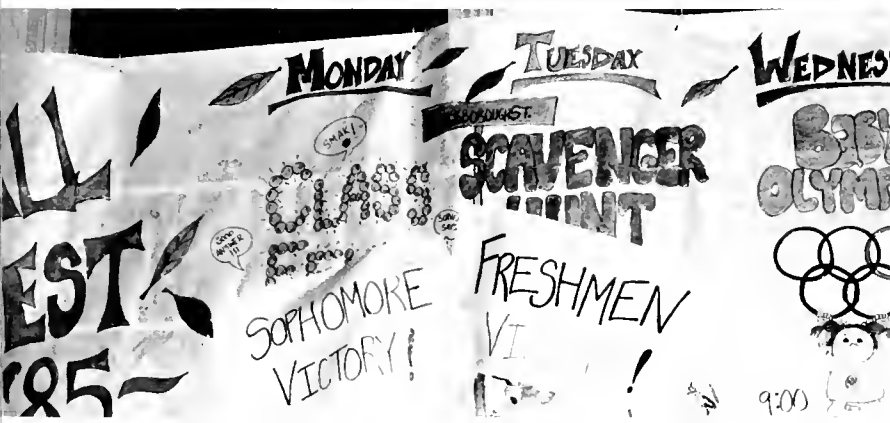 ALL
EST
'85~
MONDAY
SMAK!
CLASS
SOPHOMORE
VICTORY!
TUESDAY
SCAVENGER
HUNT
FRESHMEN
VI
!
WEDNES
BABY
OLYMPI
9:00